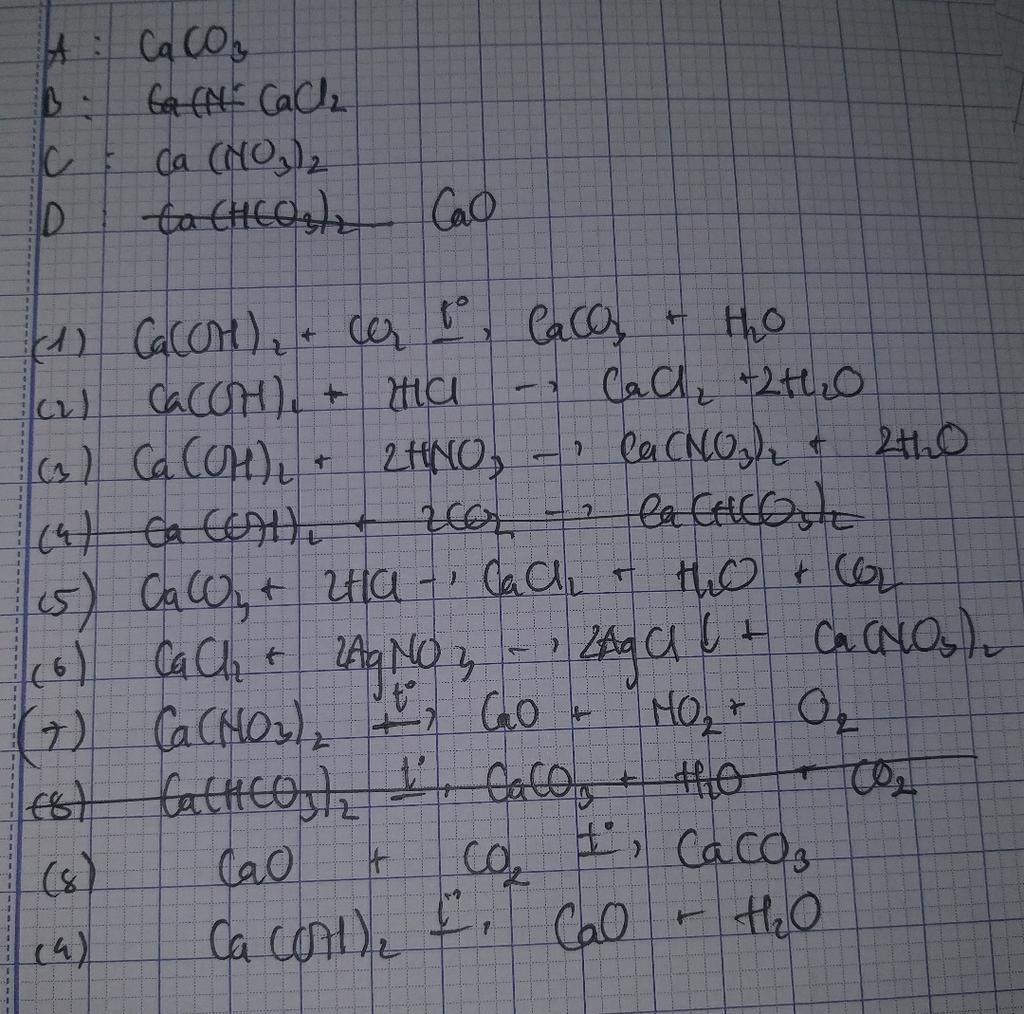 A : CaCO3
B : Ca(N= CaCl2
C : Ca(NO3)2
D : Ca(HCO3)2 CaO
(1) Ca(OH)2 + CO2 t° → CaCO3 + H2O
(2) Ca(OH)2 + 2HCl → CaCl2 + 2H2O
(3) Ca(OH)2 + 2HNO3 → Ca(NO3)2 + 2H2O
(4) Ca(OH)2 + 2CO2 → Ca(HCO3)2
(5) CaCO3 + 2HCl → CaCl2 + H2O + CO2
(6) CaCl2 + 2AgNO3 → 2AgCl ↓ + Ca(NO3)2
(7) Ca(NO3)2 t° → CaO + NO2 + O2
(8) Ca(HCO3)2 t° → CaCO3 + H2O + CO2
(8) CaO + CO2 t° → CaCO3
(4) Ca(OH)2 t° → CaO + H2O